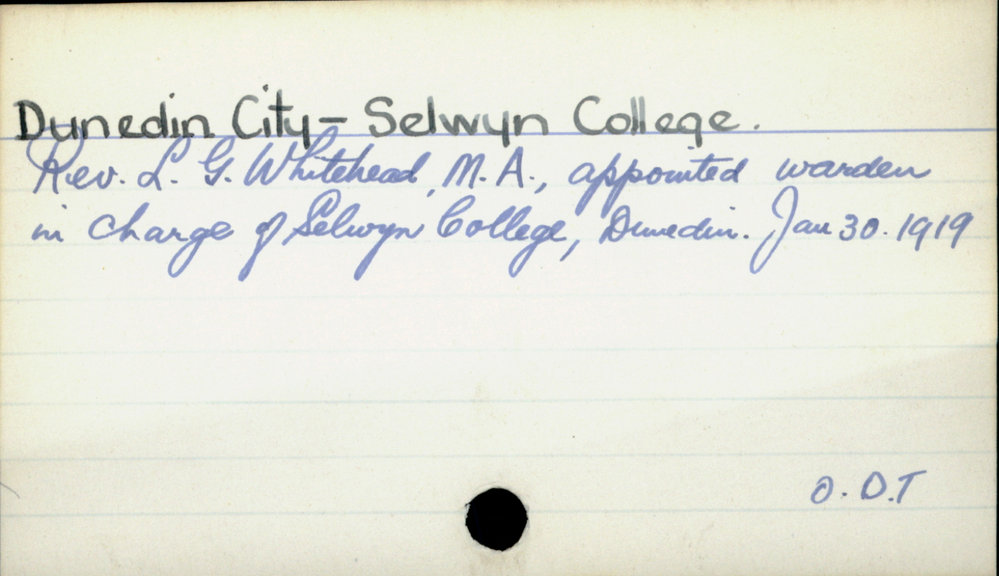 Dunedin City - Selwyn College.
Rev. L. G. Whitehead, M.A., appointed warden
in charge of Selwyn College, Dunedin. Jan 30. 1919
O.D.T